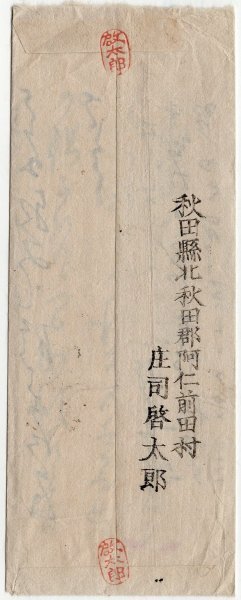 啓太郎
秋田縣北秋田郡阿仁前田村
庄司啓太郎
啓太郎